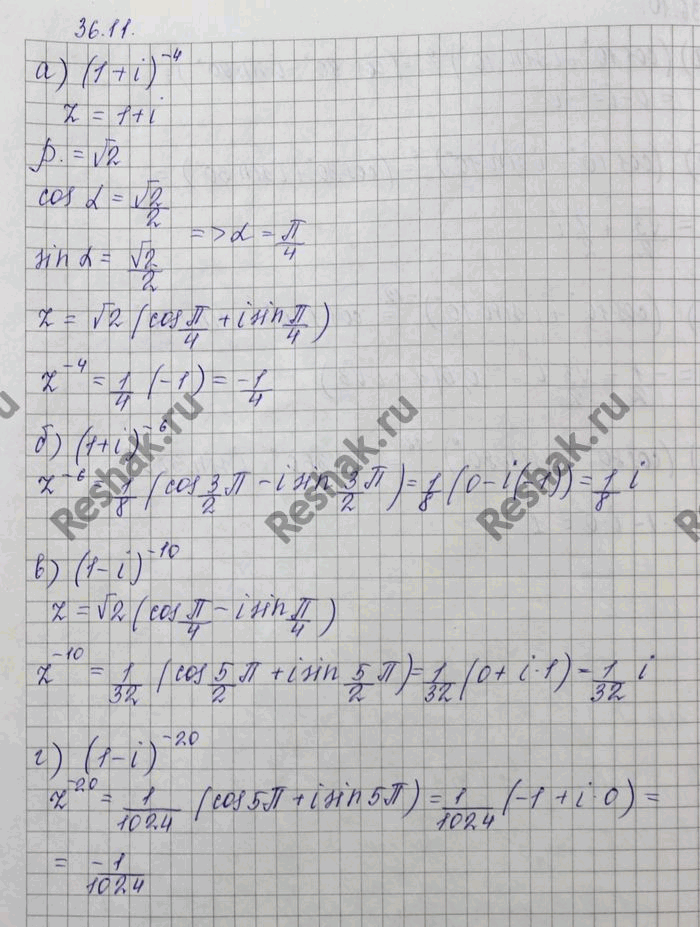 36.11.
а) (1+i)^-4
z = 1+i
ρ. = √2
cos α = √2/2
=> α = π/4
sin α = √2/2
z = √2 (cos π/4 + i sin π/4)
z^-4 = 1/4 (-1) = -1/4
б) (1+i)^-6
z^-6 = 1/8 (cos 3/2 π - i sin 3/2 π) = 1/8 (0 - i(-1)) = 1/8 i
в) (1-i)^-10
z = √2 (cos π/4 - i sin π/4)
z^-10 = 1/32 (cos 5/2 π + i sin 5/2 π) = 1/32 (0 + i·1) = 1/32 i
г) (1-i)^-20
z^-20 = 1/1024 (cos 5π + i sin 5π) = 1/1024 (-1 + i·0) =
= -1/1024
Reshak.ru
Reshak.ru
Reshak.ru